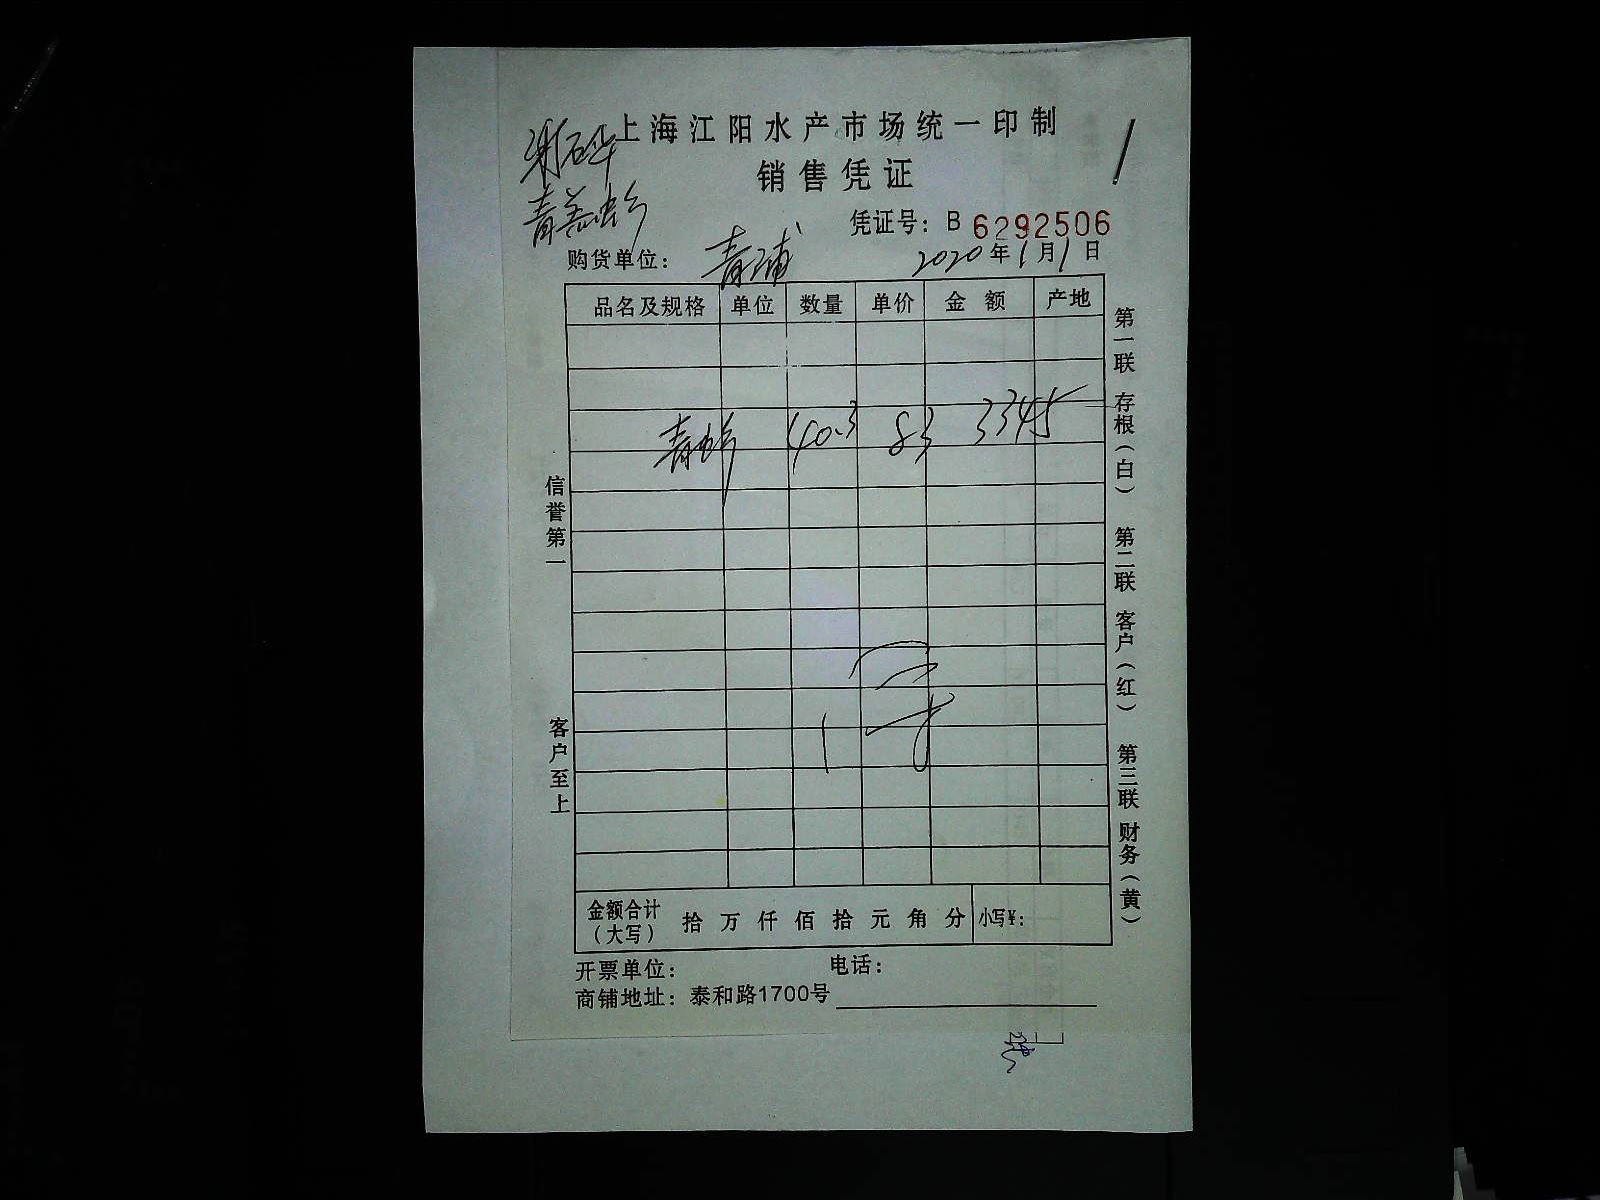 上海江阳水产市场统一印制
销售凭证
凭证号：B 6292506
购货单位：青浦 2020年1月1日
品名及规格 单位 数量 单价 金额 产地
青虾 40.3 83 3345
金额合计（大写） 拾 万 仟 佰 拾 元 角 分 小写¥：
开票单位： 电话：
商铺地址：泰和路1700号
信誉第一 客户至上
第一联 存根（白） 第二联 客户（红） 第三联 财务（黄）